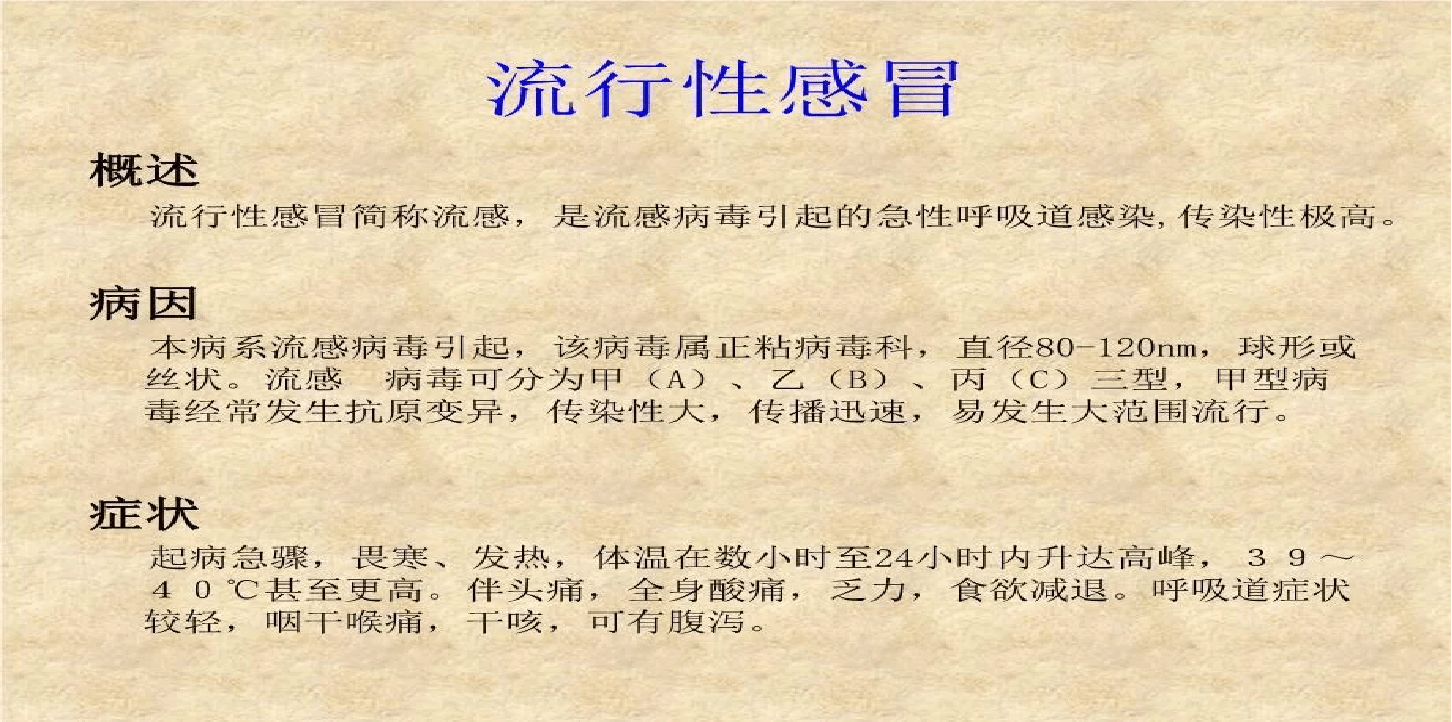 流行性感冒
概述
流行性感冒简称流感，是流感病毒引起的急性呼吸道感染,传染性极高。
病因
本病系流感病毒引起，该病毒属正粘病毒科，直径80-120nm，球形或
丝状。流感　病毒可分为甲（A）、乙（B）、丙（C）三型，甲型病
毒经常发生抗原变异，传染性大，传播迅速，易发生大范围流行。
症状
起病急骤，畏寒、发热，体温在数小时至24小时内升达高峰，３９～
４０℃甚至更高。伴头痛，全身酸痛，乏力，食欲减退。呼吸道症状
较轻，咽干喉痛，干咳，可有腹泻。